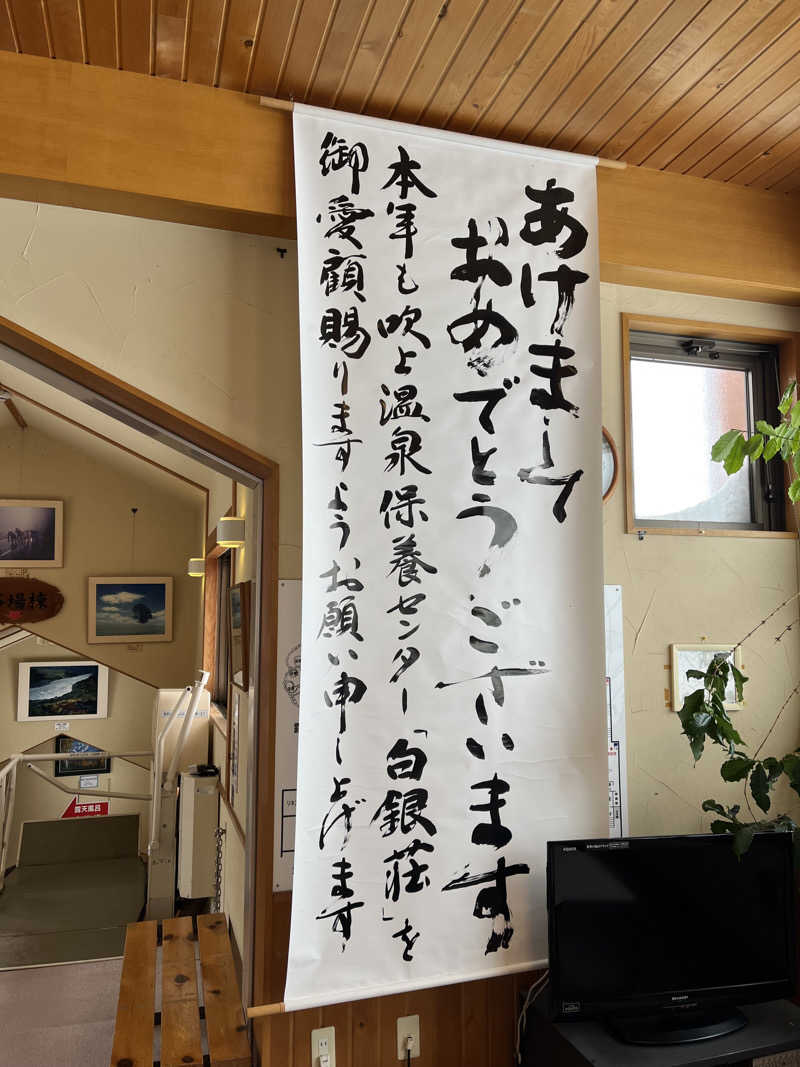 あけまして
おめでとうございます
本年も吹上温泉保養センター「白銀荘」を
御愛顧賜りますようお願い申し上げます
露天風呂
SHARP